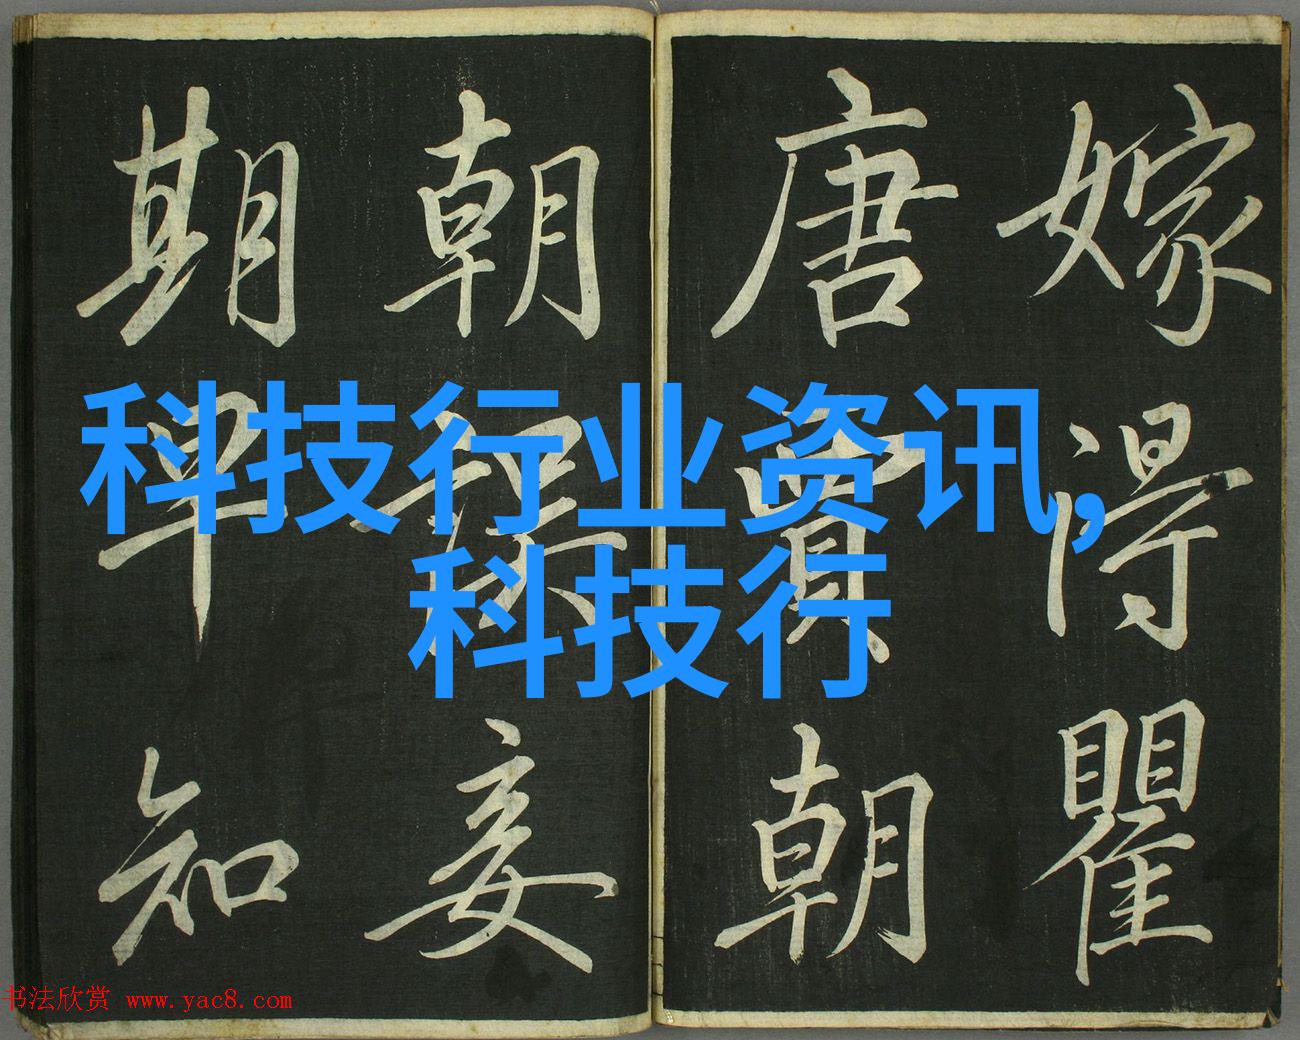 嫁得瞿
唐賈朝
朝妾
期早知
科技行业资讯,
科技行
书法欣赏 www.yac8.com